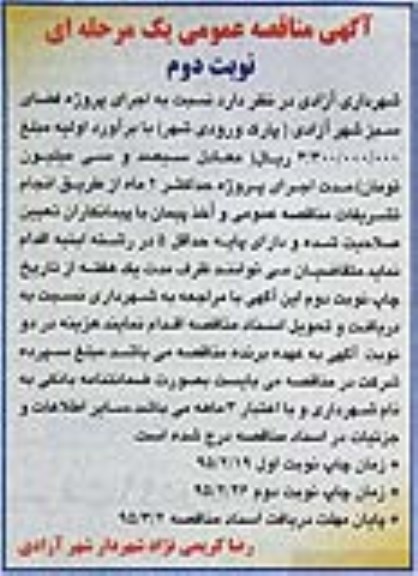 آگهی مناقصه عمومی یک مرحله ای
نوبت دوم
شهرداری آزادی در نظر دارد نسبت به اجرای پروژه فضای
سبز شهر آزادی (پارک ورودی شهر) با برآورد اولیه مبلغ
۳/۳۰۰/۰۰۰/۰۰۰ ریال( معادل سیصد و سی میلیون
تومان) مدت اجرای پروژه حداکثر ۲ ماه از طریق انجام
تشریفات مناقصه عمومی و أخذ پیمان با پیمانکاران تعیین
صلاحیت شده و دارای پایه حداقل ۵ در رشته ابنیه اقدام
نماید متقاضیان می توانند ظرف مدت یک هفته از تاریخ
چاپ نوبت دوم این آگهی با مراجعه به شهرداری نسبت به
دریافت و تحویل اسناد مناقصه اقدام نمایند هزینه در دو
نوبت آگهی به عهده برنده مناقصه می باشد مبلغ سپرده
شرکت در مناقصه می بایست بصورت ضمانتنامه بانکی به
نام شهرداری و با اعتبار ۳ ماهه می باشد سایر اطلاعات و
جزئیات در اسناد مناقصه درج شده است
* زمان چاپ نوبت اول ۹۵/۲/۱۹
* زمان چاپ نوبت دوم ۹۵/۲/۲۶
* پایان مهلت دریافت اسناد مناقصه ۹۵/۳/۲
رضا کریمی نژاد شهردار شهر آزادی